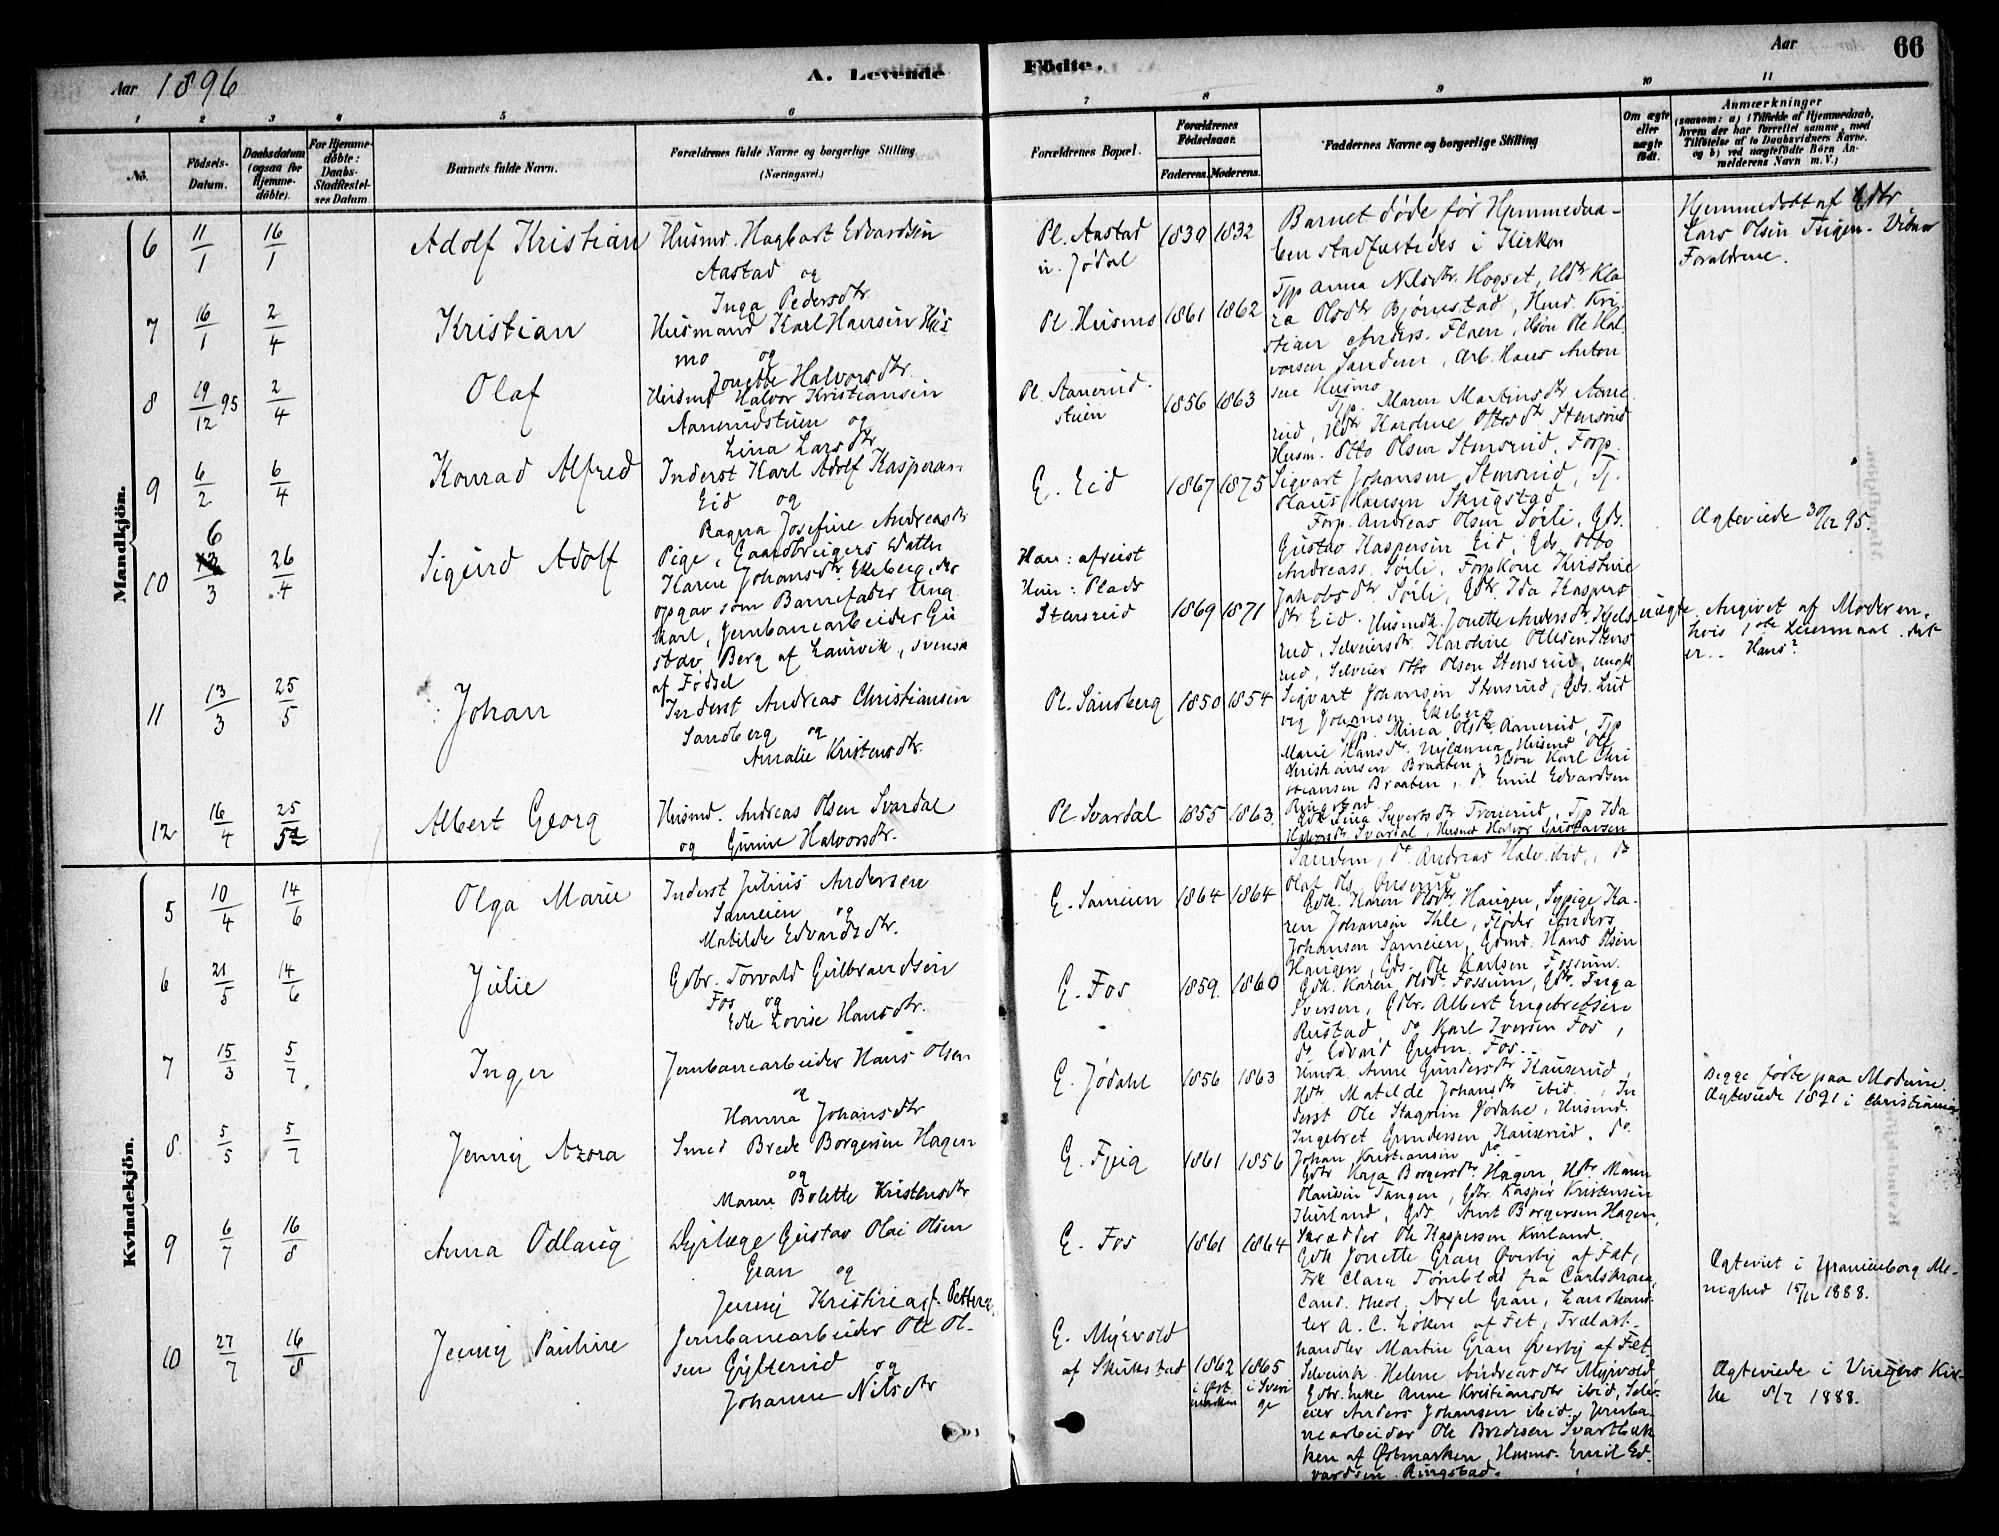 Aar 1896
A. Levende Födte.
Aar
66
1 2 3 4 5 6 7 8 9 10 11
No.
Födsels-Datum.
Daabsdatum (ogsaa for Hjemmedöbte).
For Hjemmedöbte: Daabs-Stadfæstelses Datum
Barnets fulde Navn.
Forældrenes fulde Navne og borgerlige Stilling (Næringsvei.)
Forældrenes Bopæl.
Forældrenes Födselsaar.
Faderens. Moderens.
Faddernes Navne og borgerlige Stilling
Om ægte eller uægte födt.
Anmærkninger
(saasom: a) i Tilfælde af Hjemmedaab, hvem der har forrettet samme, med Tilföielse af to Daabsvidners Navne, og b) ved uægtefödte Börn Anmelderens Navn m. V.)
Mandkjön.
6 11/1 16/1 Adolf Kristian
Husmd. Hagbart Edvardsen
Aastad og
Inga Pedersdtr.
Pl. Aastad
u. Jødal
1839 1832
Barnet døde før Hjemmedaa-
ben stadfæstedes i Kirken
Hjemmedøbt af Gdbr
Lars Olsen
Forældrene.
7 16/1 2/4 Kristian
Husmand Karl Hansen Hus
mo og
Jonette Halvorsdtr.
Pl. Husmo 1861 1862
Tjp Anna Nilsdtr. Hogset, Udtr Kla
ra Olsdtr Bjørnstad, Husmd. Kri
stian Anders. Flaen, Uson Ole Hal
vorsen Sandem, Arb. Hans Anton
sen Husmo
8 19/12 95 2/4 Olaf
Husmd Halvor Kristiansen
Aanerudstuen og
Lina Larsdtr.
Pl. Aanerud
stuen
1856 1863
Tjp. Maren Martinsdtr Aane
rud, Udtr Karoline Ottosdtr Stensrud
Husm. Otto Olsen Stensrud, Forp.
Sigvart Johansen Stensrud, Tj.
Olaus Hansen Skugstad
9 6/2 6/4 Konrad Alfred
Inderst Karl Adolf Kaspersen
Eid og
Ragna Josefine Andreasdtr
E. Eid 1867 1875
Forp. Andreas Olsen Sørli, Gds.
Gustav Kaspersen Eid, Gds. Otto
Andreass. Sørli, Forpkone Kirstine
Jakobsdtr Sørli, Gdtr. Ida Kaspers
dtr Eid.
Ægteviede 30/12 95.
10 6 13/3 26/4 Sigurd Adolf
Pige, Gaardbrugers Datter
Karen Johansdtr. Ekeberg, der
opgav som Barnefader Ung
karl, Jernbanearbeider Gu
stav Berg af Laurvik, svensk
af Fødsel
Han: afreist
Hun: Plads
Stensrud
1869 1871
Husmdk. Jonette Andersdtr Kjels
rud, Selveiersdtr. Karoline Ottesen Stens
rud, Selveier Otto Olsen Stensrud, ungk
Sigvart Johansen Stensrud, Gds. Lud
vig Johansen Ekeberg
uægte
Angivet af Moderen.
hvis 1ste Leiermaal. det
er.. Hans?
11 13/3 25/5 Johan
Inderst Andreas Christiansen
Sandberg og
Amalie Kristensdtr.
Pl. Sandberg 1850 1854
Tjp. Mina Olsdtr. Aanerud, Tjp
Marie Hansdtr. Nylænna, Husmd Ole
Kristiansen Braaten, Uson Karl Chri
stiansen Braaten, do Emil Edvardsen
Ringstad
12 16/4 25/5 Albert Georg
Husmd. Andreas Olsen Svardal
og Gunine Halvorsdtr.
Pl Svardal 1855 1863
Gdk Lina Sivertsdtr Tronerud, Tjp Ida
Halvorsdtr Svardal, Husmd Halvor Gustavsen
Sandem, do. Andreas Halv. ibid., do
Olaf Ols.
Kvindekjön.
5 10/4 14/6 Olga Marie
Inderst Julius Andersen
Sameien og
Matilde Edvardsdtr.
E. Sameien 1864 1864
Gdk. Karen Olsdtr. Haugen, Sypige Ka-
ren Johansen Ihle, Fløder Anders
Johansen Sameien, Gdmd. Hans Olsen
Haugen, Gds. Ole Karlsen Fossum.
6 21/5 14/6 Julie
Gdbr. Torvald Gulbrandsen
Fos og
Edle Lovise Hansdtr.
E. Fos 1859 1860
Gdk. Karen Olsdtr Fossum, Gdtr. Inga
Iversen, Gdbr. Albert Engebretsen
Rustad, do Karl Iversen Fos,
do Edvard Fos.
7 15/3 5/7 Inger
Jernbanearbeider Hans Olsen
og
Hanna Johansdtr
E. Jødahl 1856 1863
Husmdk. Anne Gundersdtr Kauserud,
Udtr Matilde Johansdtr ibid, In
derst Ole Stagrum Jødahl, Husmd.
Ingebret Gundersen Kauserud, do
Johan Kristiansen do
Begge født paa Modum.
Ægteviede 1891 i Christiania
8 5/5 5/7 Jenny Azora
Smed Brede Borgersen Hagen
og
Maren Bolette Kristensdtr
E. Fjeig 1861 1856
Gdtr Kaja Borgersdtr Hagen, Udtr Maren
Olausen Tangen, Gdbr. Kasper Kristensen
Kurland, Gds. Arnt Borgersen Hagen,
Skrædder Ole Kaspersen Kurland.
9 6/7 16/8 Anna Odlaug
Dyrlæge Gustav Olai Olsen
Gran og
Jenny Kristine f. Pettersen
E. Fos 1861 1864
Gdk Jonette Gran Øverby af Fet,
Frk Clara Tømblad fra Carlskrona,
Cand. theol. Axel Gran, Landhand-
ler A. C. Løken af Fet, Trælast-
handler Martin Gran Øverby af Fet
Ægteviet i Uranienborg Me-
nighed 15/12 1888.
10 27/7 16/8 Jenny Pauline
Jernbanearbeider Ole Ol-
sen Gylterud og
Johanne Nilsdtr
E. Myrvold
af Skulsstad
1862 i Østmarken
1865 i Sverige
Selveierk Helene Andreasdtr Myrvold,
Gdbr. Enke Anne Kristiansdtr ibid, Selv-
eier Anders Johansen ibid, Jernba-
nearbeider Ole Bredesen Svartbak
ken af Østmarken, Husmd. Emil Ed
vardsen Ringstad.
Ægteviede i Vingers Kir-
ke 8/7 1888.